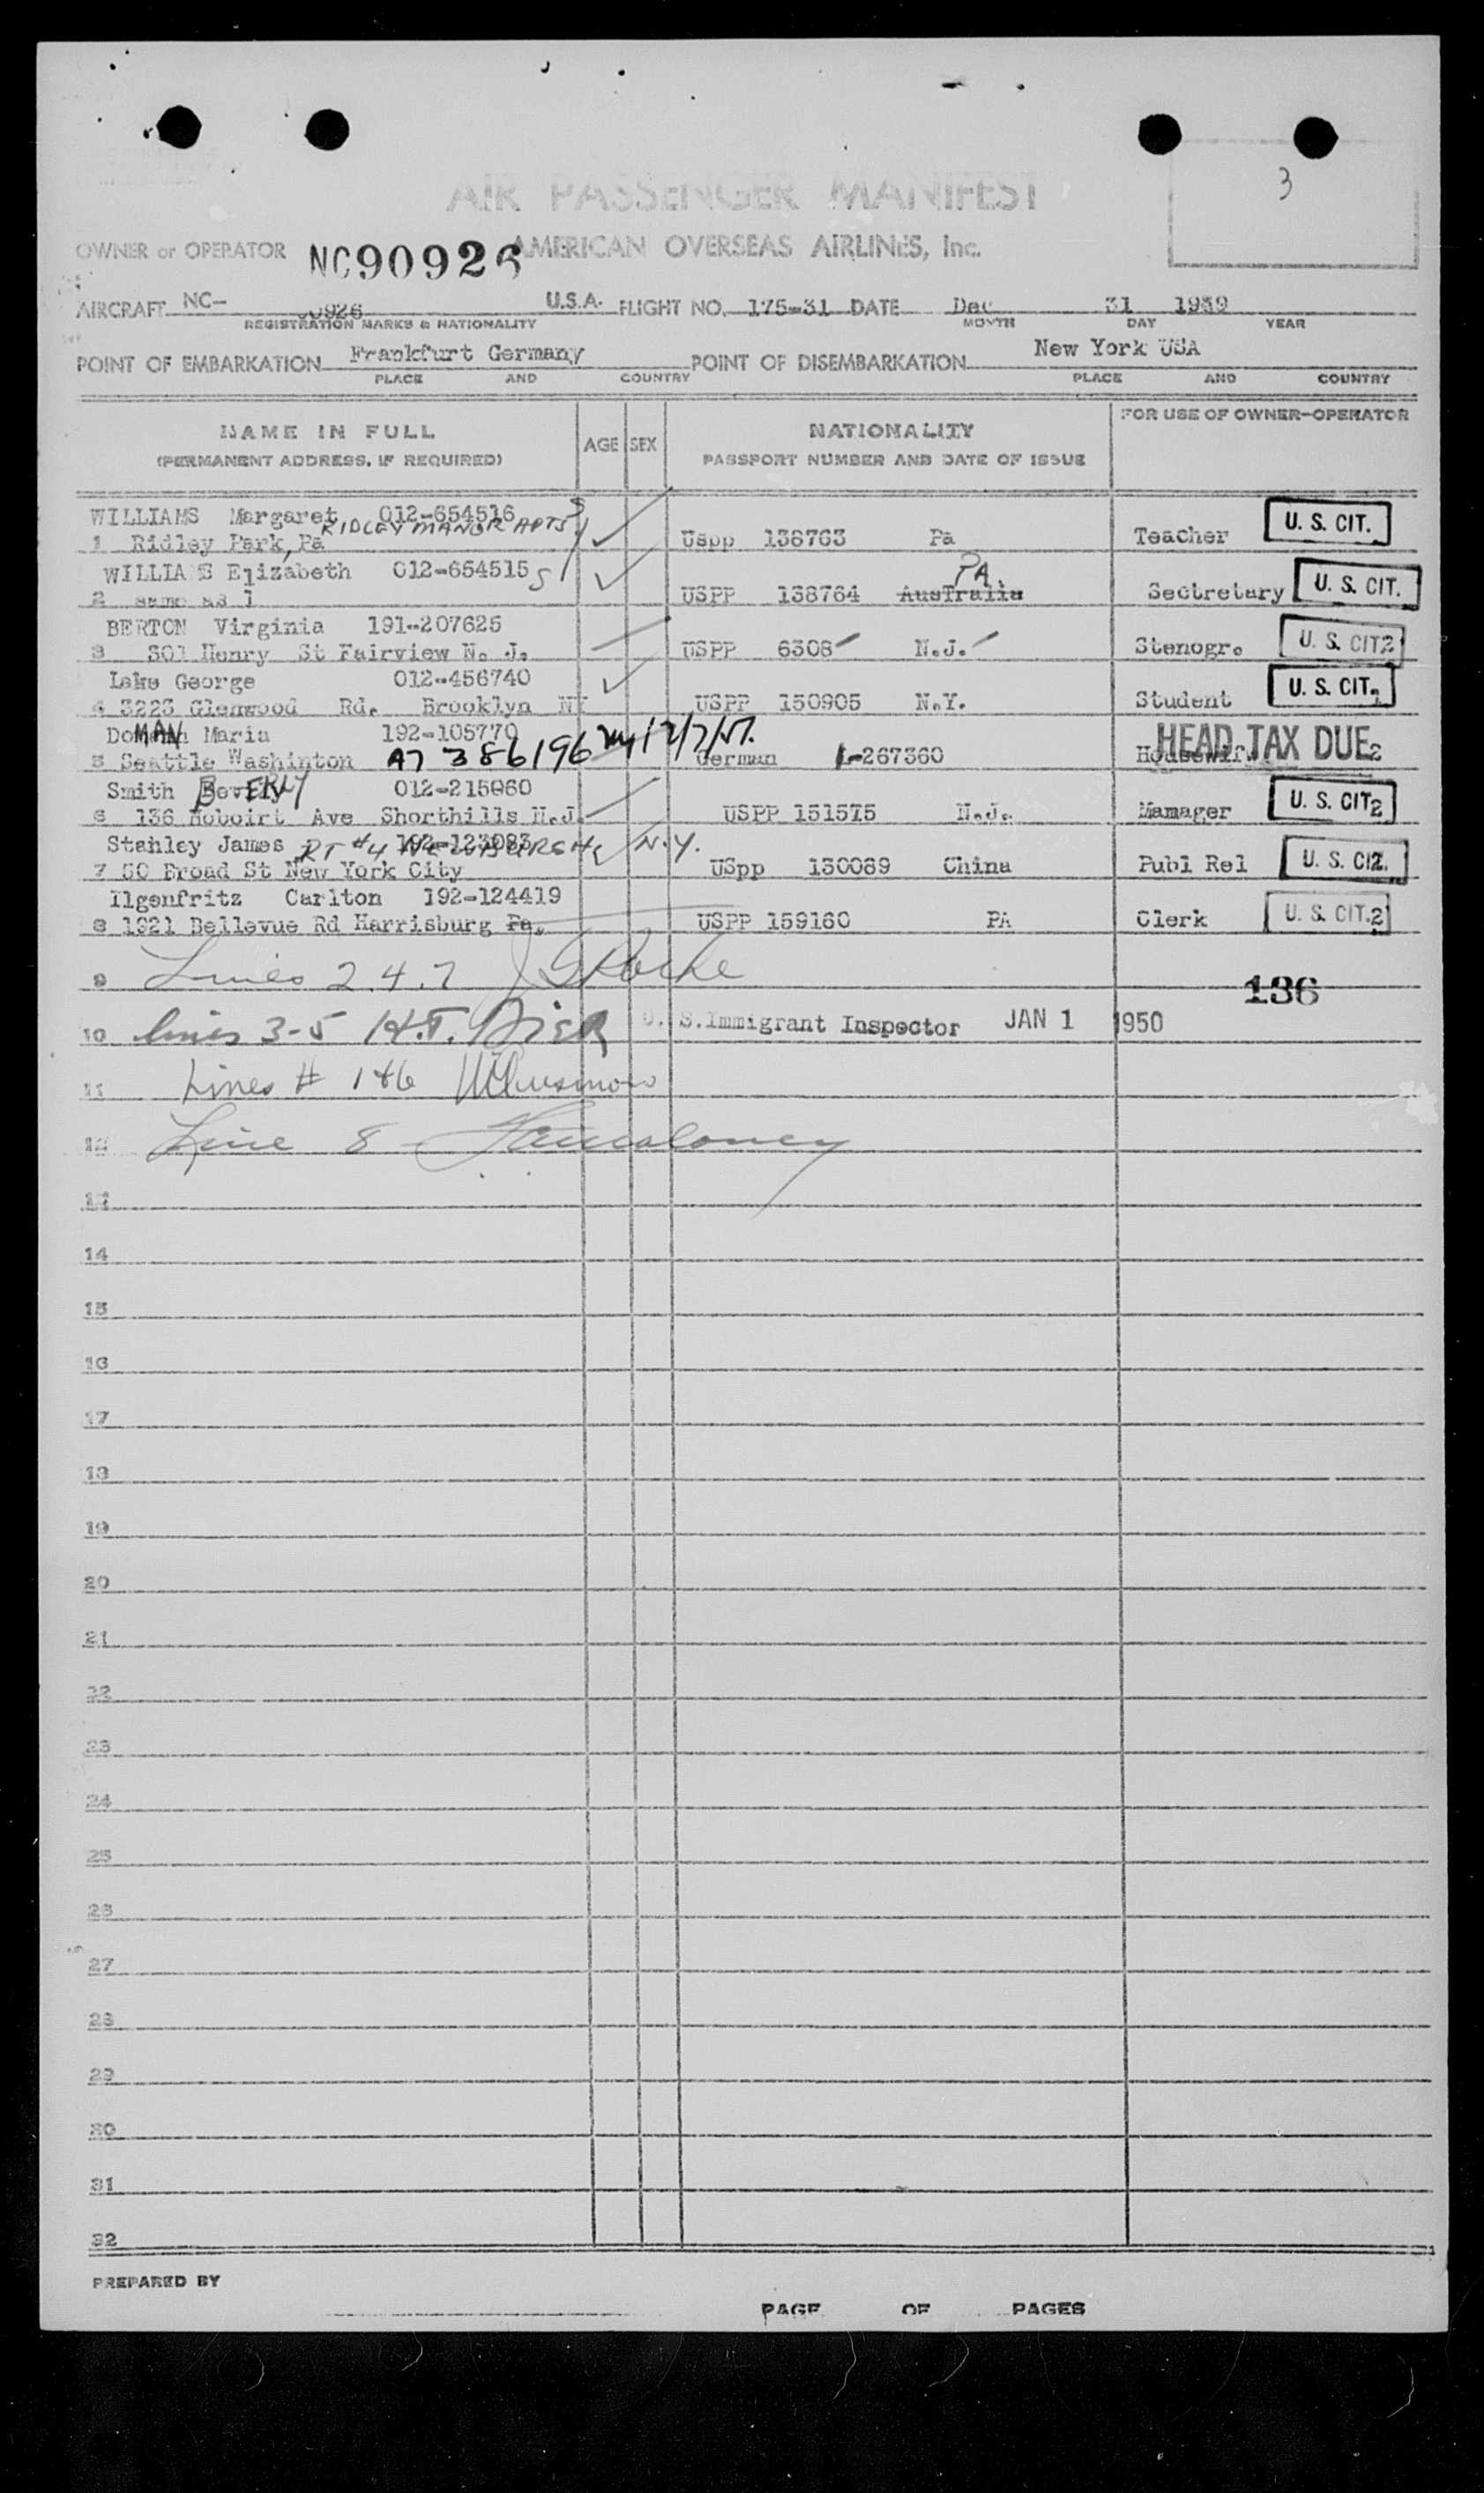 3
AIR PASSENGER MANIFEST
OWNER or OPERATOR NC90926 AMERICAN OVERSEAS AIRLINES, Inc.
AIRCRAFT NC- 90926 U.S.A. FLIGHT NO. 175-31 DATE Dec 31 1959
REGISTRATION MARKS & NATIONALITY MONTH DAY YEAR
POINT OF EMBARKATION Frankfurt Germany POINT OF DISEMBARKATION New York USA
PLACE AND COUNTRY PLACE AND COUNTRY
NAME IN FULL AGE SEX NATIONALITY FOR USE OF OWNER-OPERATOR
(PERMANENT ADDRESS, IF REQUIRED) PASSPORT NUMBER AND DATE OF ISSUE
WILLIAMS Margaret 012-654516 S
RIDLEY MANOR APTS
1 Ridley Park, Pa USpp 138763 Pa Teacher U. S. CIT.
WILLIAMS Elizabeth 012-654515 S PA.
2 same as 1 USPP 138764 AusTralia Sectretary U. S. CIT.
BERTON Virginia 191-207625
3 301 Henry St Fairview N. J. USPP 6308 N.J. Stenogr. U. S. CIT2
Lake George 012-456740
4 3223 Glenwood Rd. Brooklyn NY USPP 150905 N.Y. Student U. S. CIT.
DoMAN Maria 192-105770
5 Seattle Washinton A7 386196 12/7/51. German 267360 HEAD TAX DUE 2
Smith BevERLY 012-215060
6 136 Hoboirt Ave Shorthills N.J. USPP 151575 N.J. Mamager U. S. CIT2
Stanley James 192-123083 RT #4 NEWBURGH, N.Y.
7 50 Broad St New York City USpp 130069 China Publ Rel U. S. CI2.
Ilgenfritz Carlton 192-124419
8 1921 Bellevue Rd Harrisburg Pa. USPP 159160 PA Clerk U. S. CIT.2
9 Lines 2.4.7
136
10 lines 3-5 H.T. U. S. Immigrant Inspector JAN 1 1950
11 Lines # 1&6
12 Line 8
13
14
15
16
17
18
19
20
21
22
23
24
25
26
27
28
29
30
31
32
PREPARED BY
PAGE OF PAGES